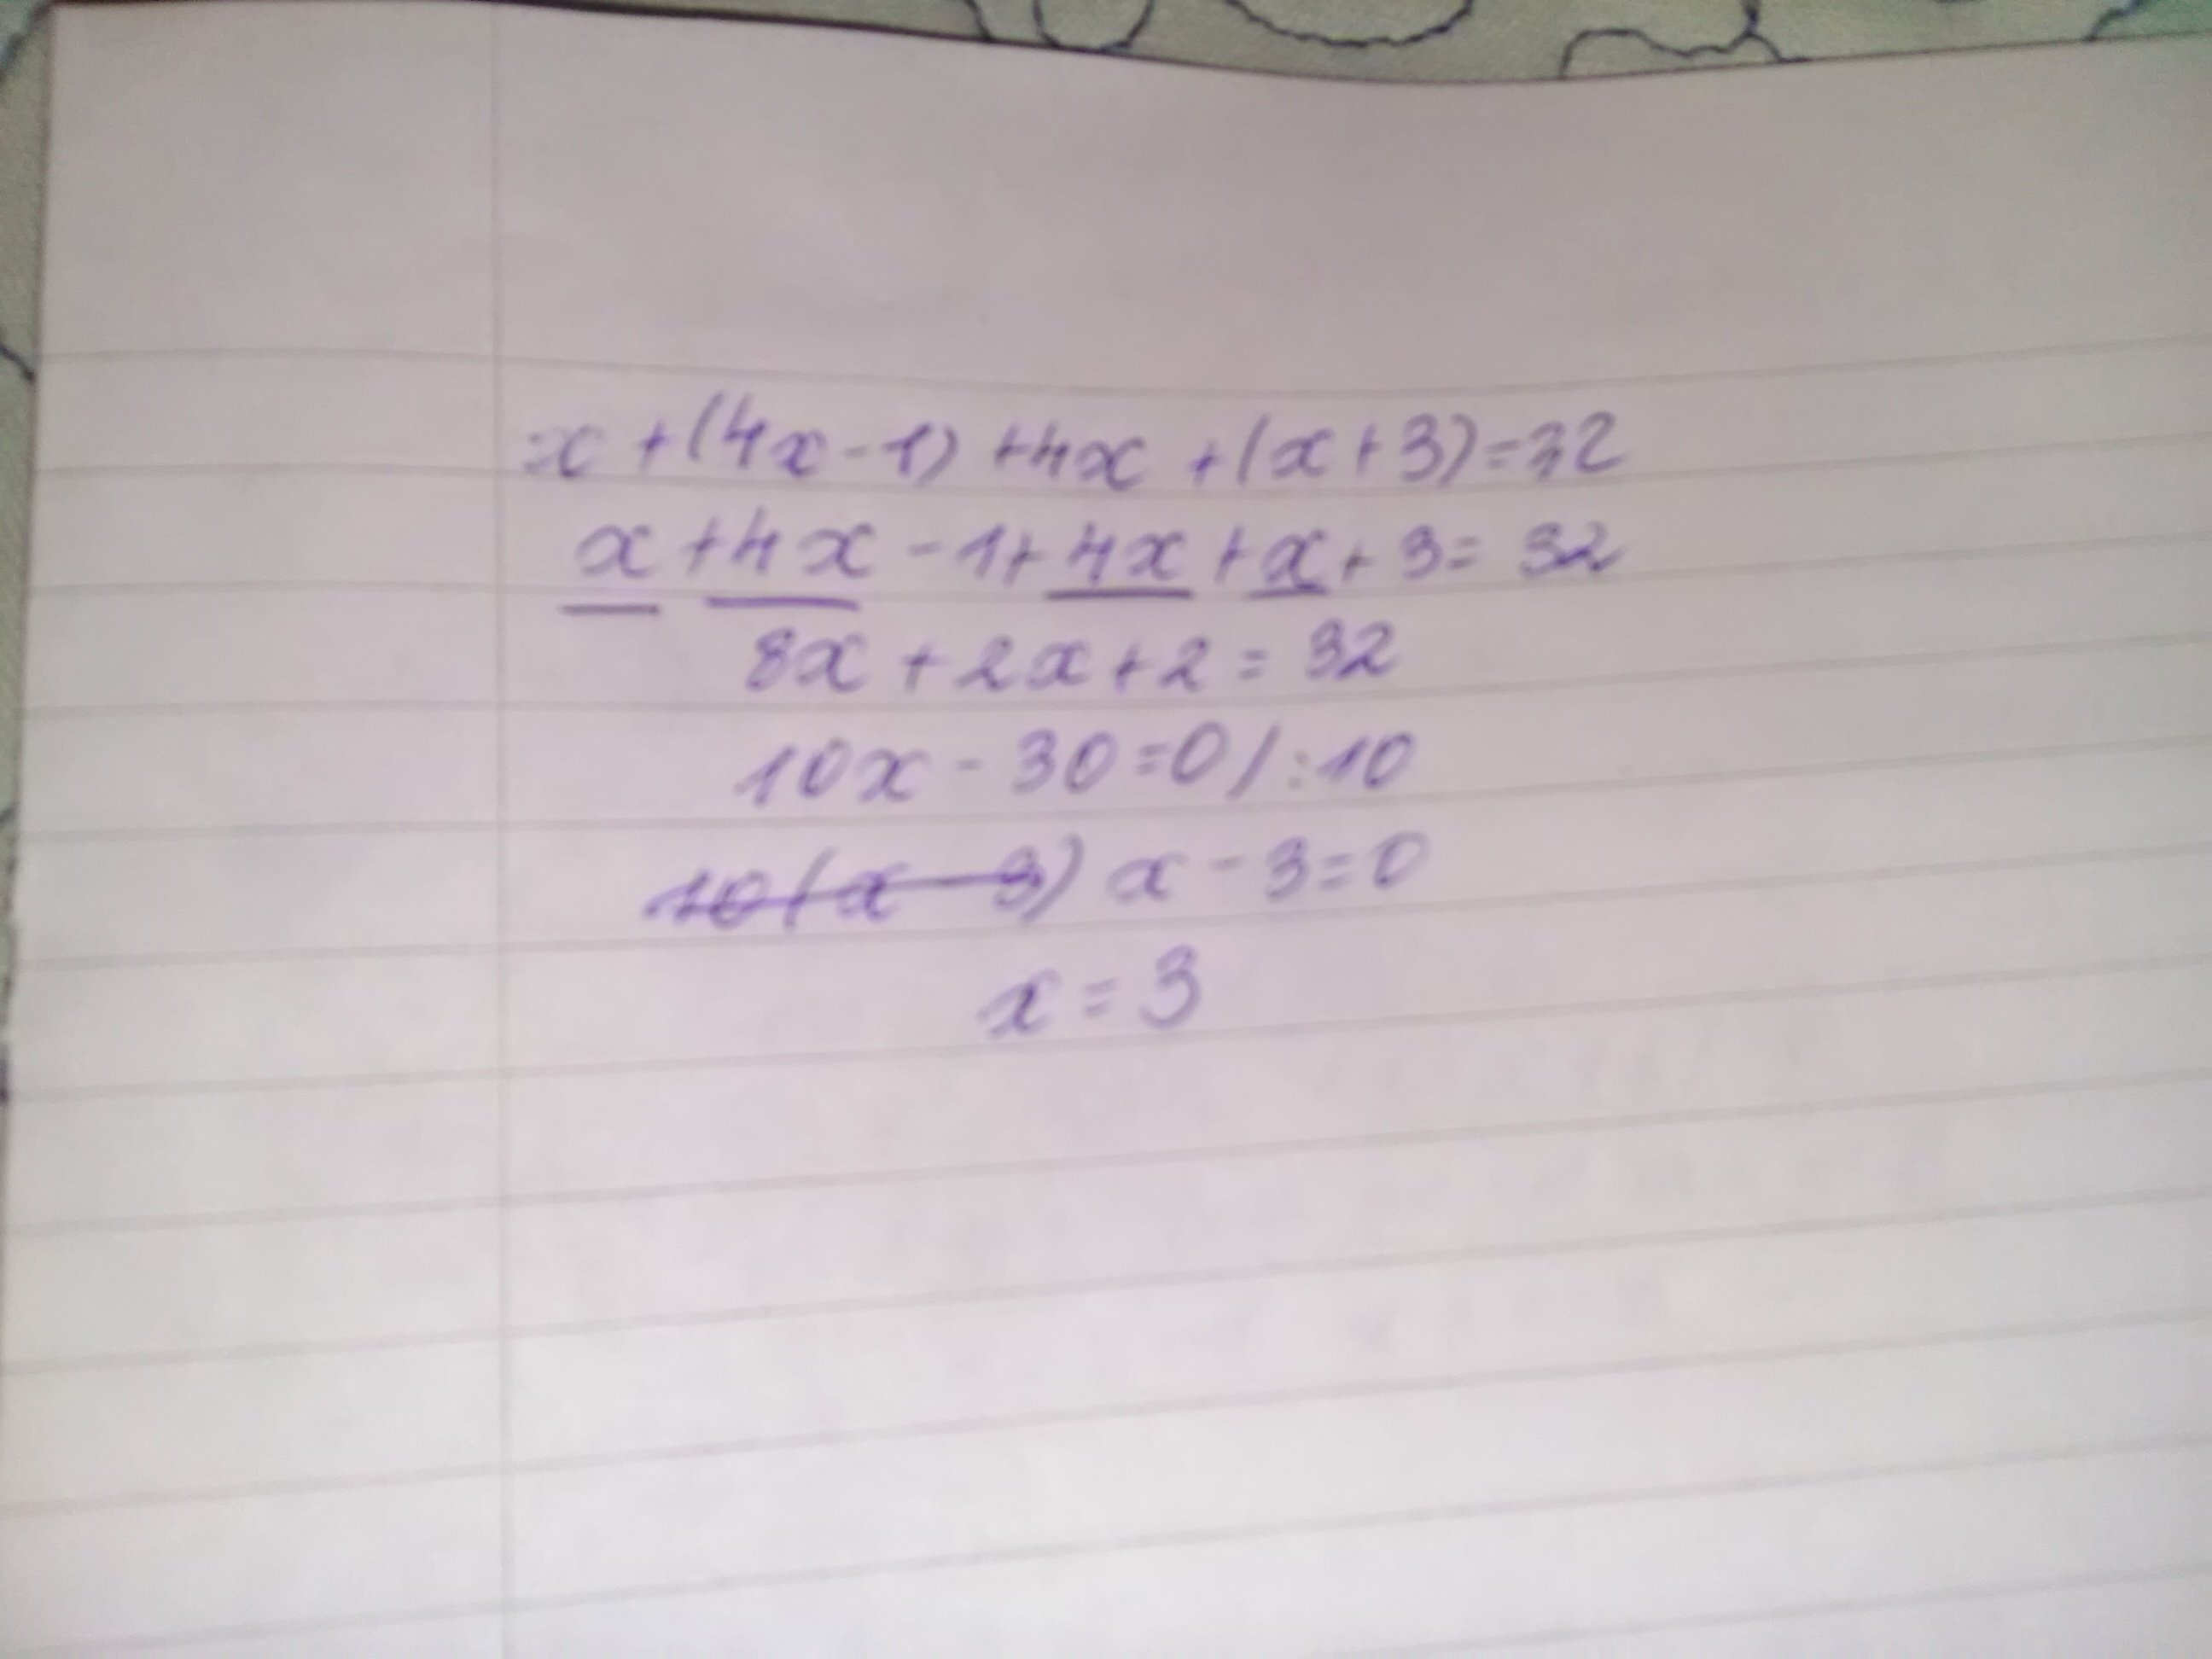 =x + (4x - 1) + 4x + (x + 3) = 32
x + 4x - 1 + 4x + x + 3 = 32
8x + 2x + 2 = 32
10x - 30 = 0 / : 10
10(x - 3) x - 3 = 0
x = 3